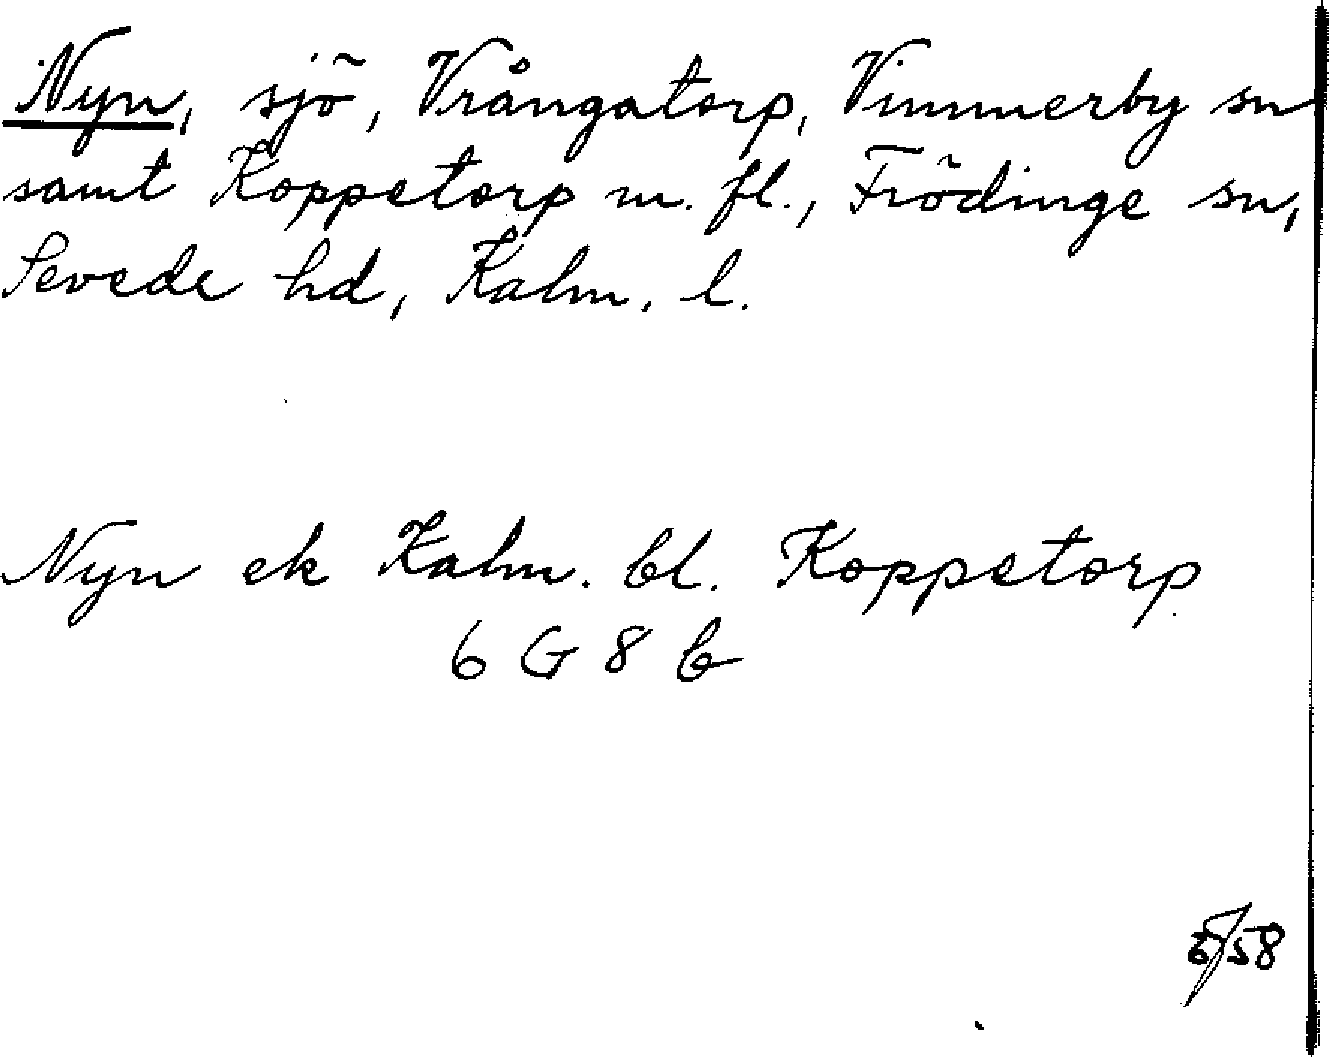 Nyn, sjö, Vrångatorp, Vimmerby sn
samt Koppetorp m. fl., Frödinge sn,
Sevede hd, Kalm. l.
Nyn ek Kalm. bl. Koppetorp
6 G 8 b